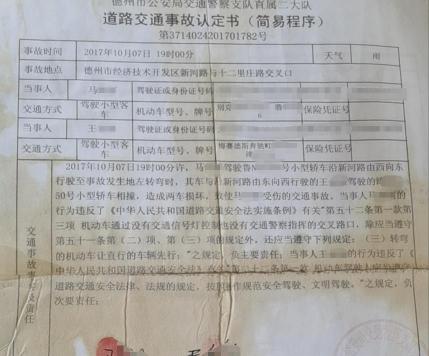 德州市公安局交通警察支队直属二大队
道路交通事故认定书（简易程序）
第3714024201701782号
事故时间 2017年10月07日 19时00分 天气 雨
事故地点 德州市经济技术开发区新河路与十二里庄路交叉口
当事人 马 驾驶证或身份证号码
交通方式 驾驶小型客车 机动车型号、牌号 别克 保险凭证号
当事人 王 驾驶证或身份证号码
交通方式 驾驶小型客车 机动车型号、牌号 梅赛德斯奔驰牌 保险凭证号
交通事故 责任
2017年10月07日19时00分许，马 驾驶鲁N 号小型轿车沿新河路由西向东
行驶至事故发生地左转弯时，其车与沿新河路由东向西行驶的王 驾驶的
50号小型轿车相撞，造成两车损坏，致使马 受伤的交通事故。当事人马 的
行为违反了《中华人民共和国道路交通安全法实施条例》有关"第五十二条第一款第
三项 机动车通过没有交通信号灯控制也没有交通警察指挥的交叉路口，除应当遵守
第五十一条第（二）项、第（三）项的规定外，还应当遵守下列规定：（三）转弯
的机动车让直行的车辆先行；"之规定，负主要责任；当事人王 的行为违反了《
中华人民共和国道路交通安全法》 机动车驾驶人应当遵守
道路交通安全法律、法规的规定，按照操作规范安全驾驶、文明驾驶。"之规定，负
次要责任；